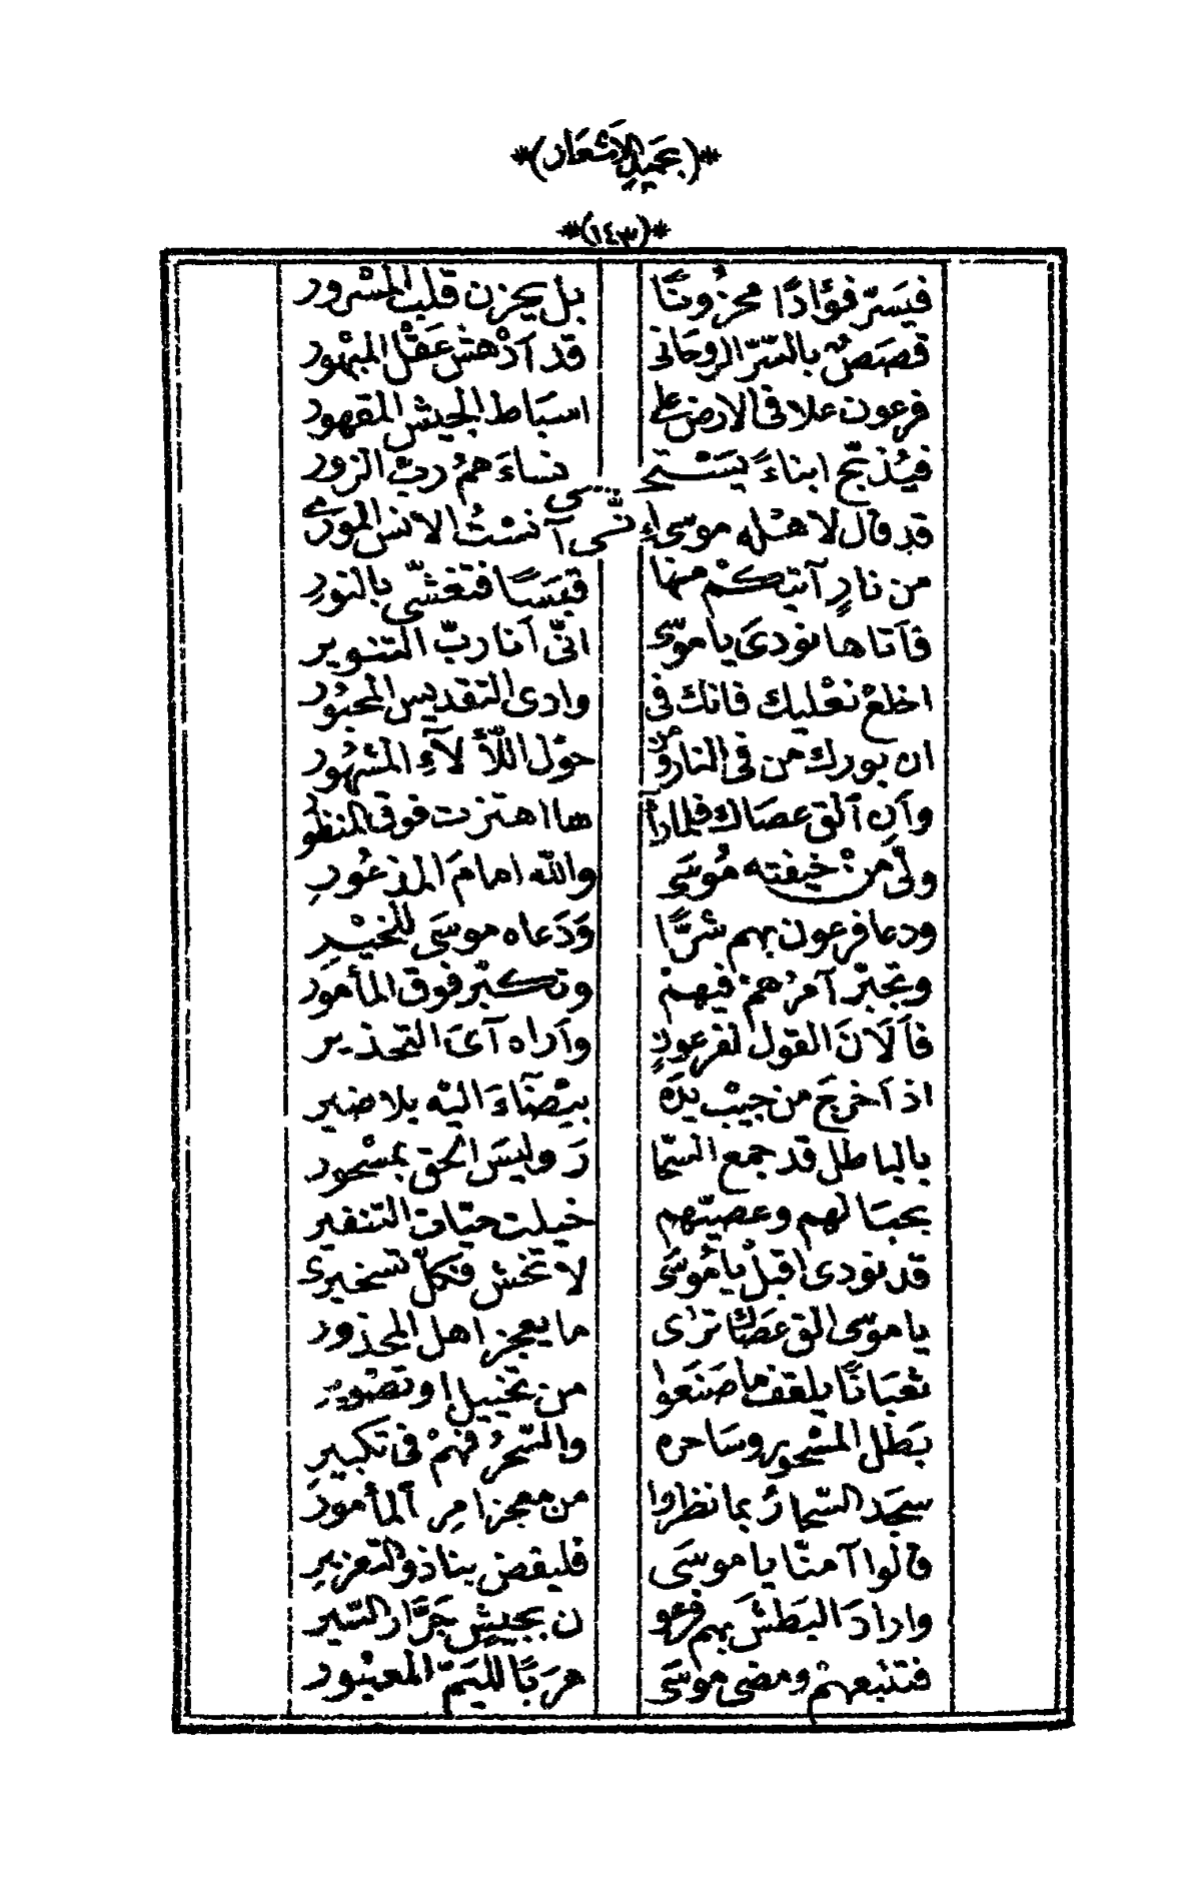 *(بجَميلِ الاَشعَار)*
*(١٤٣)*
فيَسَرّ فؤَادًا محزُونًا بل يحزن قلبَ المسْرور
قصَصٌ بالسّرّ الروحَانى قد اَدْهشَ عَقْل المبْهور
فرعون علا فى الارض على اسبَاط الجيش المقهور
فيُذبّح ابناءً يَسْتحيى نساءَ همُ ربّ الزور
قد قال لاهْله موسى اِنّى آنسْتُ الانس المورى
من نارٍ آتيكمْ منها قبَسًا فتغشّى بالنورِ
فاَتاها نودىَ يا موسَى انّى اَنا ربّ التنوير
اخلعْ نعْليك فانك فى وادى التقديس المحبُور
ان بورك من فى النار ومن حوْل اللّألآءِ المشهُور
واَن اَلق عصَاك فلما رأ ها اهتزت فوق المنظو
ولّى منْ خيفته مُوسَى والله امامَ المذعُورِ
ودعا فرعون بهم شرًّا وَدَعاه موسَى للخيْرِ
وتجبّر آمرُهمْ فيهمْ وتكبّر فوق المأمور
فاَلَانَ القول لفرعونٍ واَراه آىَ التحذير
اذ اَخرجَ من جيْب يدَه بيْضاءَ اليْه بلا ضير
بالباطل قد جمع السّحا رَ وليسَ الحق بمسْحور
بحبَالهم وعصيّهم خيلت حيّات التنفير
قد نودى اقبلْ يا مُوسَى لا تخش فكلّ تسخيرى
يا موسى الق عصَاك ترَى ما يعجز اهل المحذور
ثعبَانًا يلقف ما صَنَعوا من تخييل او تصْوير
بَطل المسْحور وسَاحره والسّحرُ فهمْ فى تكبير
سجَد السّحارُ بما نظروا من معجز امرِ اَلمأمور
قالوا آمنّا يا موسَى فليقض بنا ذو التعزير
وارادَ البَطشَ بهم فرْعو ن بجيشٍ جَرَّار السّير
فتتبعهمْ ومضى موسَى هرَبًا لليَمّ المعبُور